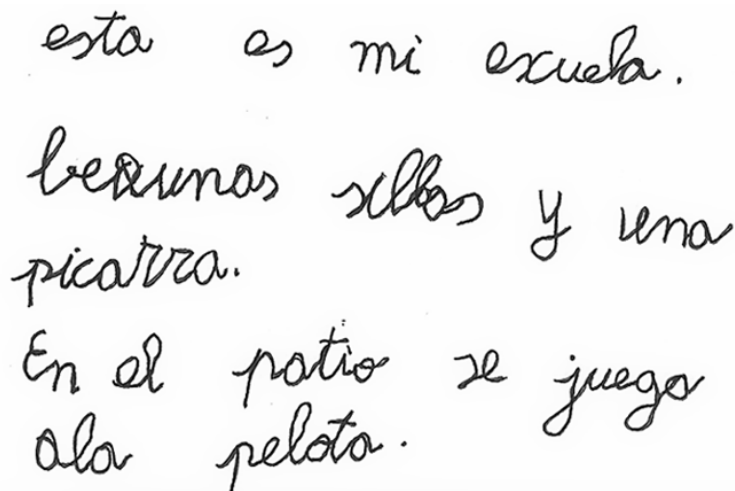 esta es mi escuela.
beounas sillas y una
picarra.
En el patio se juega
ala pelota.